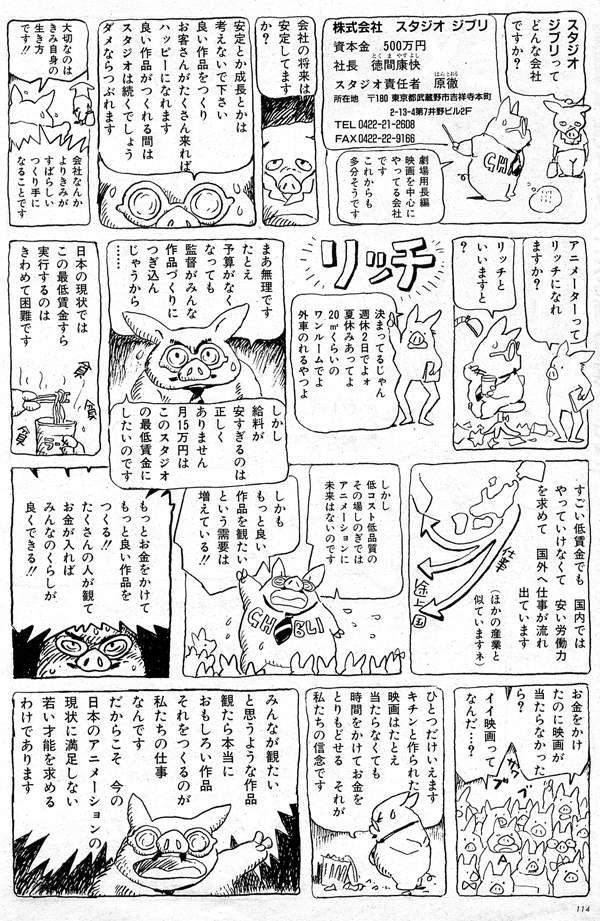 スタジオ
ジブリって
どんな会社
ですか？
株式会社　スタジオ ジブリ
資本金　500万円
社長　徳間康快
とくまやすよし
スタジオ責任者　原徹
はらとおる
所在地　〒180 東京都武蔵野市吉祥寺本町
2-13-4第7井野ビル2F
TEL 0422-21-2608
FAX 0422-22-9166
劇場用長編
映画を中心に
やってる会社
です
これからも
多分そうです
GH
会社の将来は
安定してます
か？
安定とか成長とかは
考えないで下さい
良い作品をつくり
お客さんがたくさん来れば
ハッピーになれます
良い作品がつくれる間は
スタジオは続くでしょう
ダメならつぶれます
大切なのは
きみ自身の
生き方
です!!
会社なんか
よりきみが
すばらしい
つくり手に
なることです
アニメーターって
リッチになれ
ますか？
リッチと
いいますと
？
リッチ
決まってるじゃん
週休2日でよォ
夏休みあってよ
20㎡くらいの
ワンルームでよ
外車のれるやつよ
まあ無理です
たとえ
予算がなく
なっても
監督がみんな
作品づくりに
つぎ込ん
じゃうから
……
しかし
給料が
安すぎるのは
正しく
ありません
月15万円は
このスタジオ
の最低賃金に
したいのです
日本の現状では
この最低賃金すら
実行するのは
きわめて困難です
貧
貧
貧
ラーメン
すごい低賃金でも　国内では
やっていけなくて　安い労働力
を求めて　国外へ仕事が流れ
出ています
（ほかの産業と
似ていますネ）
仕事
途上国
しかし
低コスト低品質の
その場しのぎでは
アニメーションに
未来はないのです
しかも
もっと良い
作品を観たい
という需要は
増えている!!
GHIBLI
もっとお金をかけて
もっと良い作品を
つくる!!
たくさんの人が観て
お金が入れば
みんなのくらしが
良くできる!!
お金をかけ
たのに映画が
当たらなかった
ら？
イイ映画って
なんだ…？
ザワザワ
ブブ
ひとつだけいえます
キチンと作られた
映画はたとえ
当たらなくても
時間をかけてお金を
とりもどせる　それが
私たちの信念です
みんなが観たい
と思うような作品
観たら本当に
おもしろい作品
それをつくるのが
私たちの仕事
なんです
だからこそ　今の
日本のアニメーションの
現状に満足しない
若い才能を求める
わけであります
114